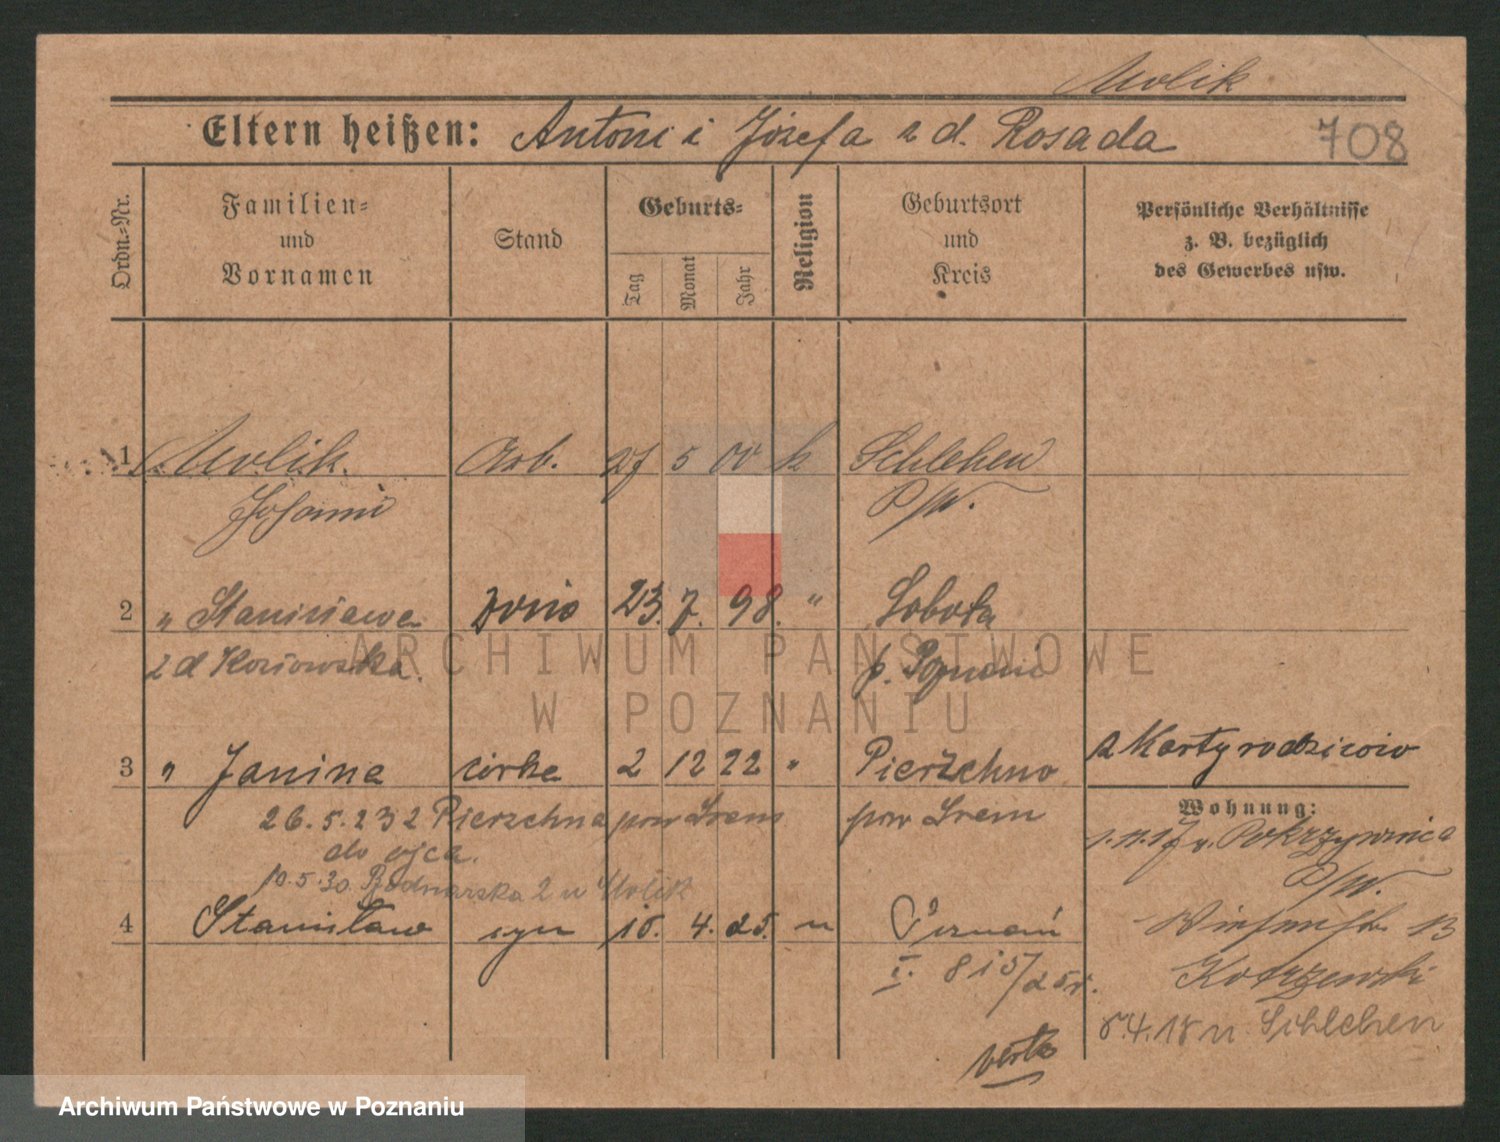 Molik
Eltern heißen: Antoni i Józefa z d. Rosada
708
Ordn.-Nr.
Familien-
und
Vornamen
Stand
Geburts-
Tag
Monat
Jahr
Religion
Geburtsort
und
Kreis
Persönliche Verhältnisse
z. B. bezüglich
des Gewerbes usw.
1 Molik Arb. 27 5 00 k Schlehen
Johann P/W.
2 " Stanisława żona 23. 7. 98. " Sobota
z d Kozłowska. p. Poznań
3 " Janina córka 2 12 22 " Pierzchno z Karty rodziców
26.5.23 z Pierzchna pow Śrem pow Śrem
Wohnung:
do ojca.
1.11.17 v. Pokrzywnica
10.5.30 Bednarska 2 u Molik P/W.
4 Stanisław syn 15. 4. 25. " Poznań
Wiesenstr. 13
I. 815/25r. Kotrzewski
8.4.18 n. Schlehen
verte
ARCHIWUM PAŃSTWOWE
W POZNANIU
Archiwum Państwowe w Poznaniu